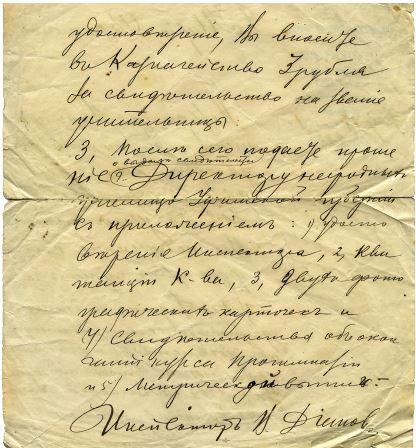 удостовѣрение, Вы вносите
въ Казначейство 3 рубля
за свидѣтельство на званіе
учительницы.
3, Послѣ сего подаете проше
о выдачѣ свидѣтельства
ніе Директору народныхъ
училищъ Уфимской губерніи
съ приложеніемъ: 1) удосто
вѣрения Инспектора, 2, Кви
танціи К-ва, 3, двухъ фото
графическихъ карточекъ и
4) Свидѣтельства объ окон
чаніи курса Прогимназіи
и 5) Метрической выписи.
Инспекторъ